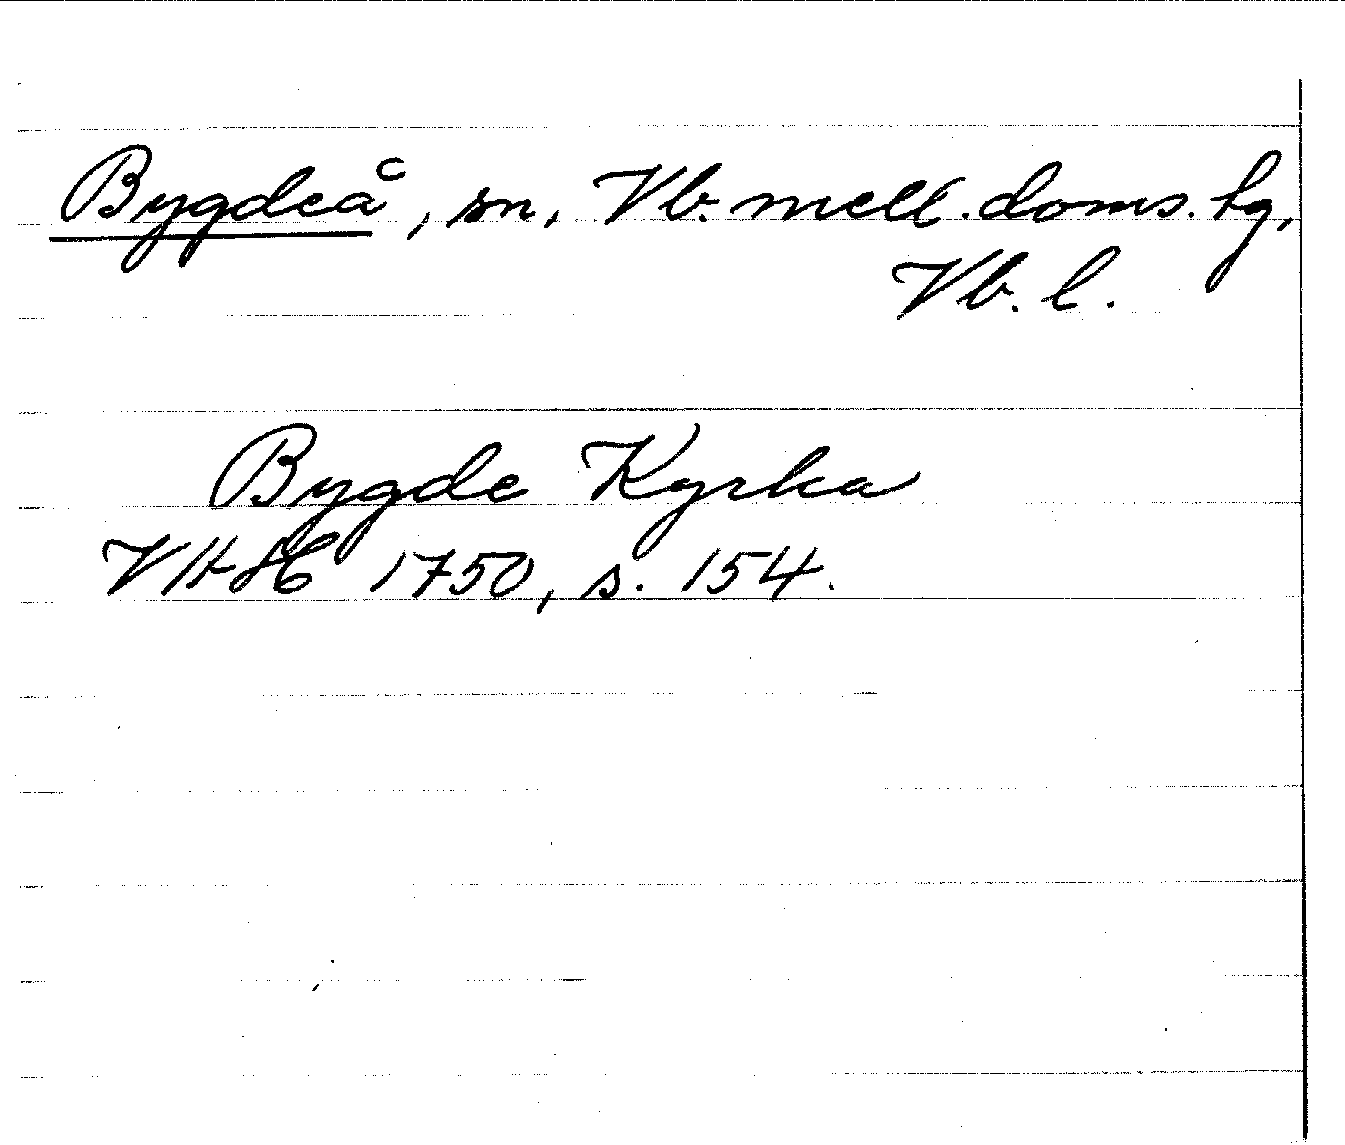 Bygdeå, sn, Vb. mell. doms. hg,
Vb. l.
Bygde Kyrka
1750, s. 154.